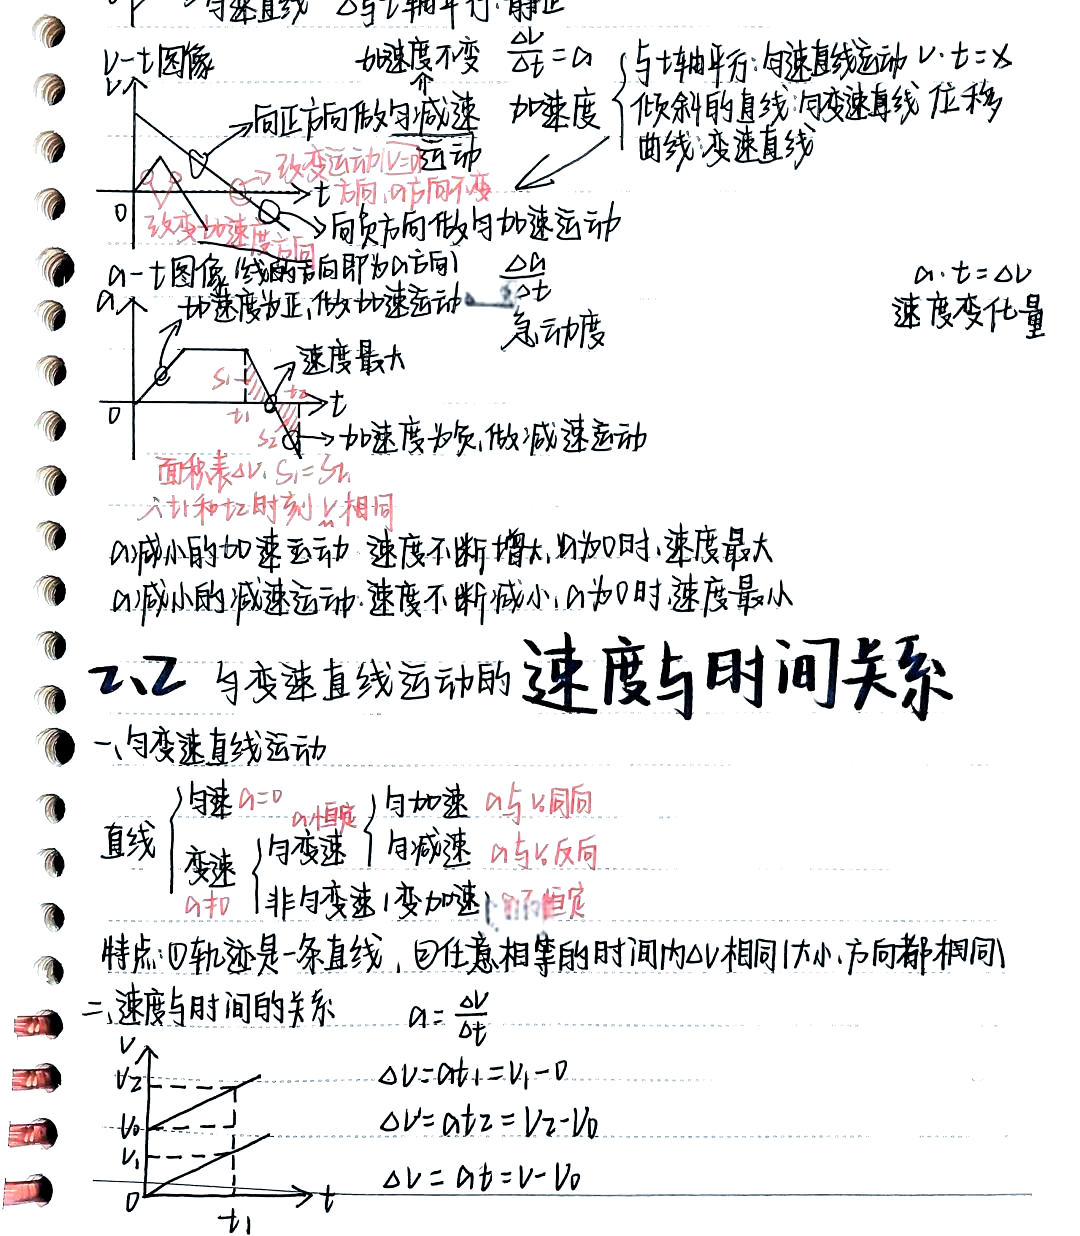 匀速直线 △与t轴平行:静止
v-t图像 加速度不变 Δv/Δt=a
v
向正方向做匀减速运动
加速度 { 与t轴平行:匀速直线运动 v·t=x
倾斜的直线:匀变速直线 位移
曲线:变速直线
改变运动(v=0)
方向,a方向不变
t
0
向负方向做匀加速运动
改变加速度方向
a-t图像(线的方向即为a方向) Δa/Δt a·t=Δv
a 加速度为正,做加速运动 急动度 速度变化量
速度最大
S₁ t₁ t₂ t
0
S₂ 加速度为负,做减速运动
面积表Δv, S₁=S₂,
∴t₁和t₂时刻v相同
a减小的加速运动 速度不断增大,a为0时,速度最大
a减小的减速运动 速度不断减小,a为0时,速度最小
2.2 匀变速直线运动的速度与时间关系
一、匀变速直线运动
直线 { 匀速 a=0
变速 a≠0 { 匀变速 a恒定 { 匀加速 a与v₀同向
匀减速 a与v₀反向
非匀变速(变加速) a不恒定
特点:①轨迹是一条直线,②任意相等的时间内Δv相同(大小、方向都相同)
二、速度与时间的关系 a=Δv/Δt
v
v₂ Δv=at₁=v₁-0
v₀ Δv=at₂=v₂-v₀
v₁
Δv=at=v-v₀
0 t₁ t